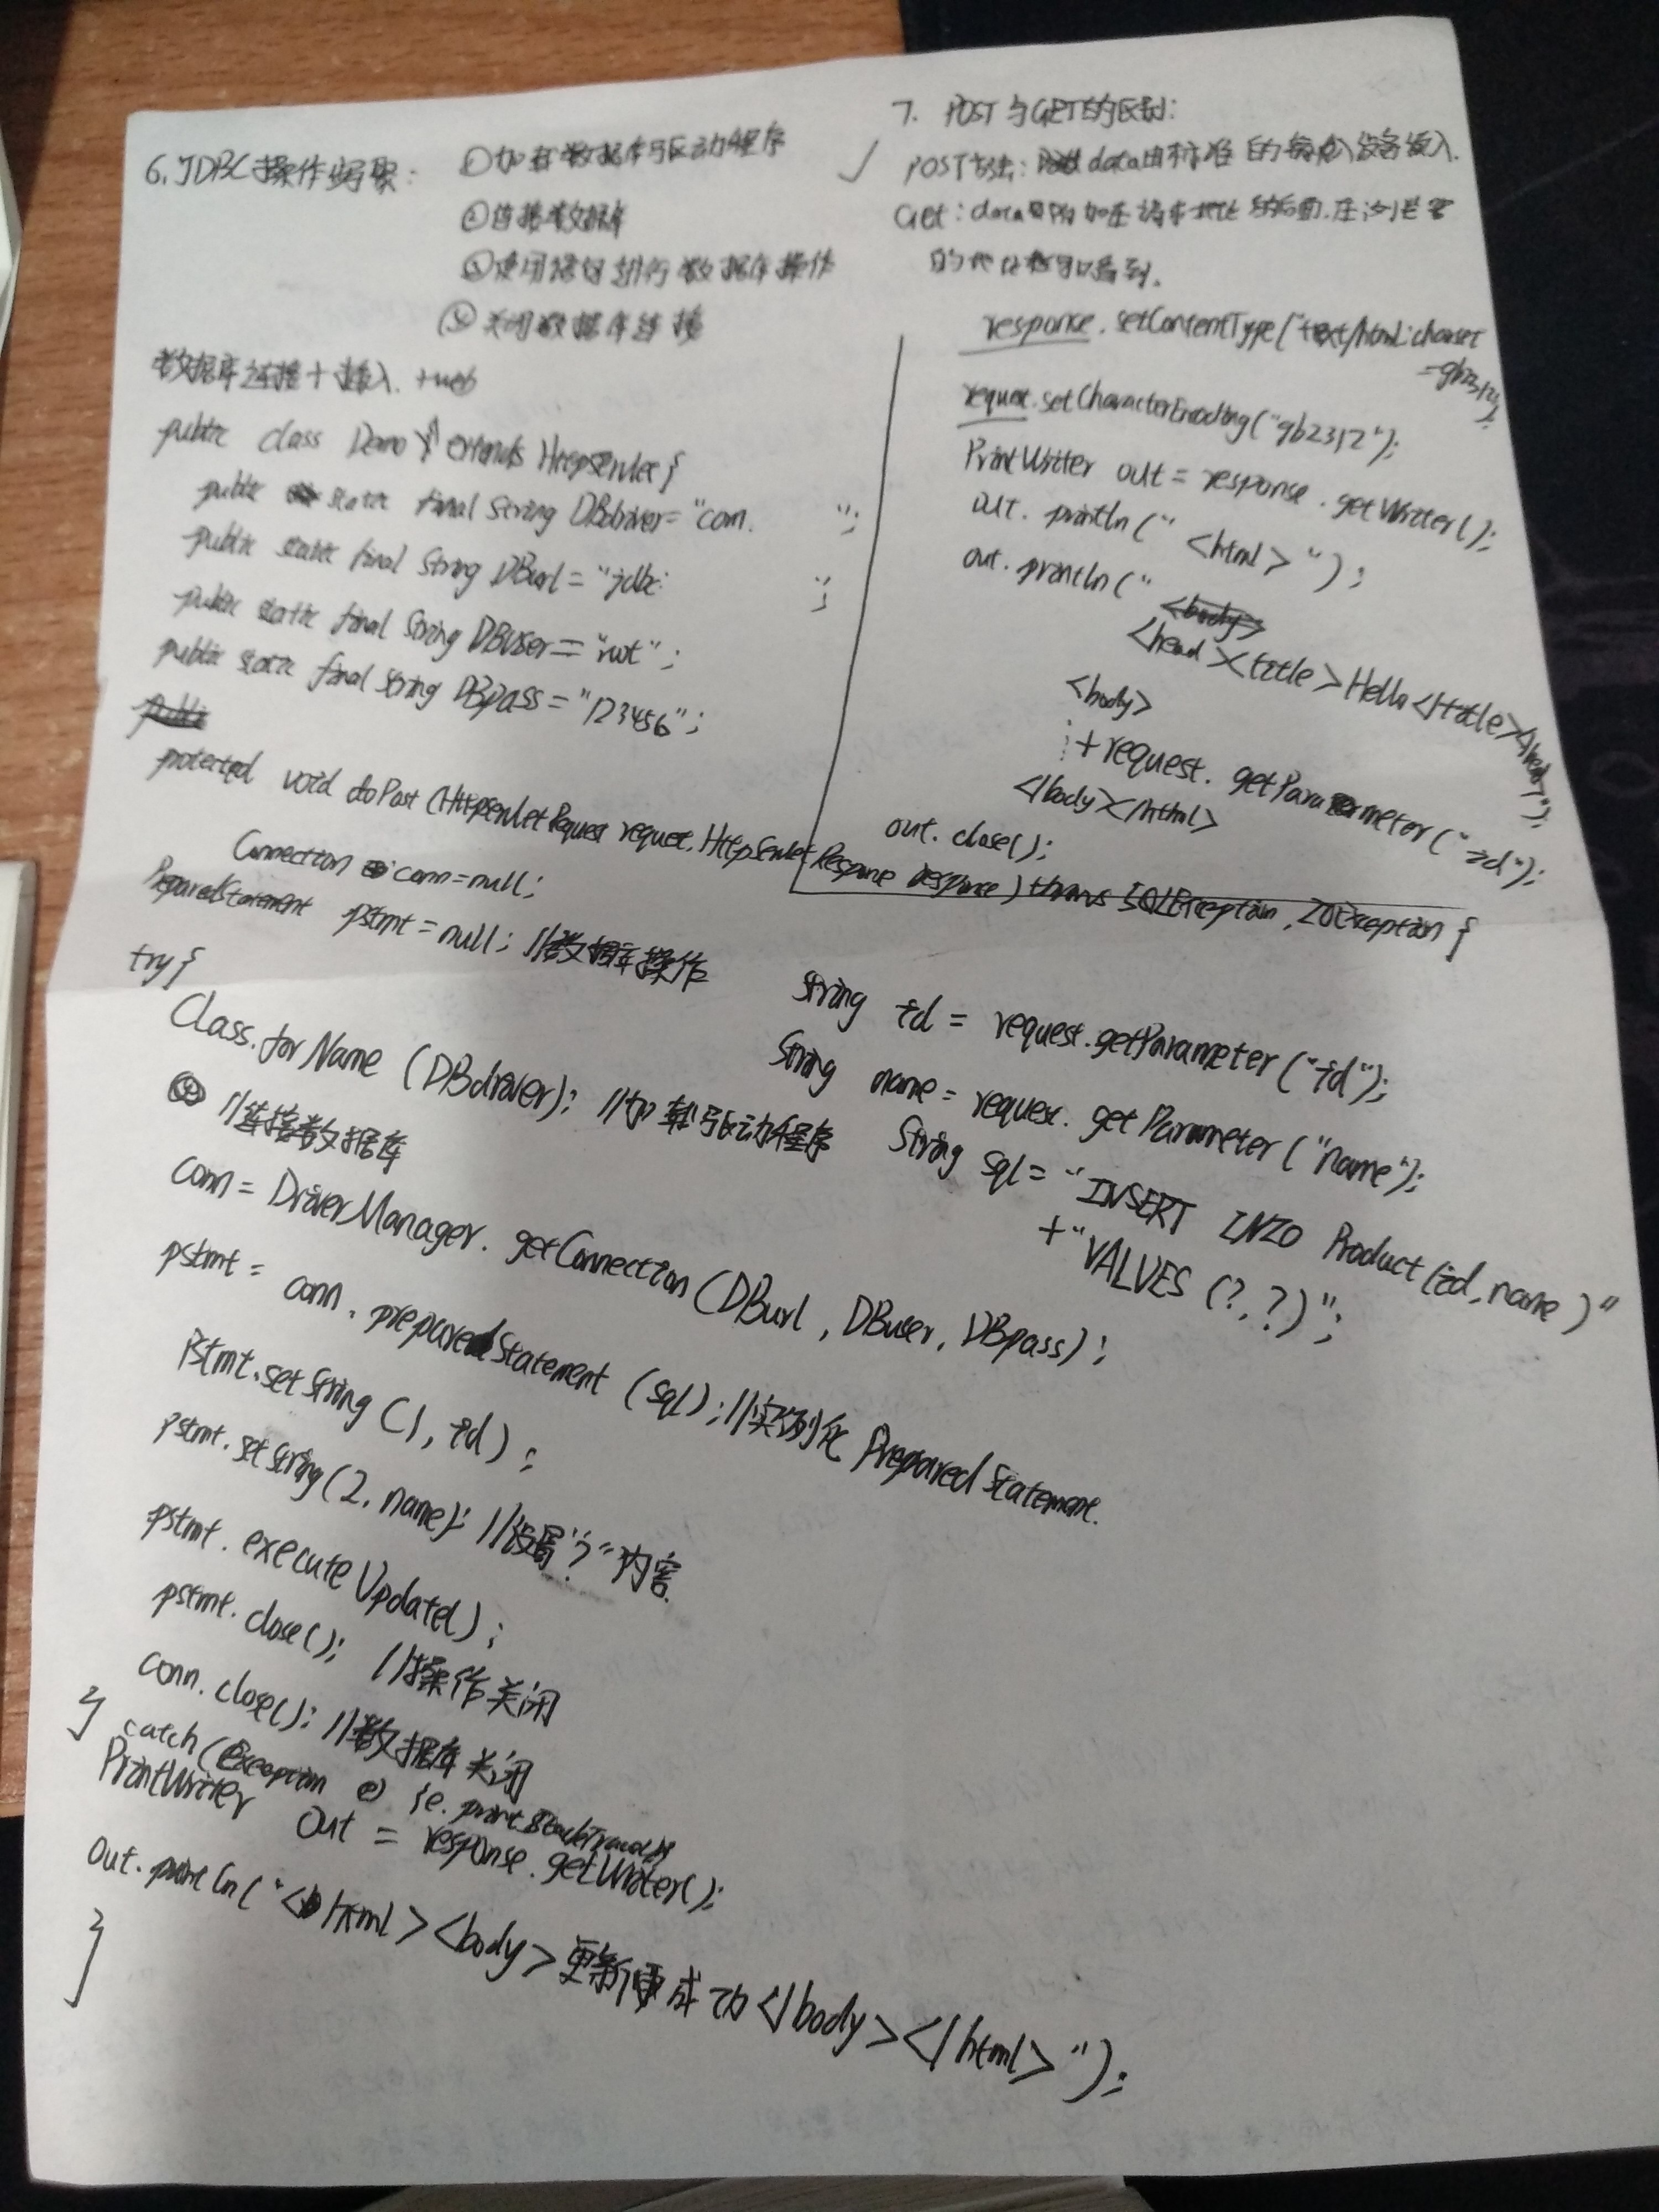 6. JDBC操作步骤:
①加载数据库驱动程序
②连接数据库
③使用语句进行数据库操作
④关闭数据库连接
7. POST与GET的区别:
✓ POST方法: data由标准的输入设备读入.
Get: data附加在请求地址的后面.在浏览器
的地址栏可以看到.
数据库连接+插入. +web
public class Demo extends HttpServlet {
public static final String DBdriver="com. ";
public static final String DBurl="jdbc: ";
public static final String DBuser="root";
public static final String DBpass="123456";
response.setContentType("text/html;charset
=gb2312");
request.setCharacterEncoding("gb2312");
PrintWriter out=response.getWriter();
out.println("<html>");
out.println("
<head><title>Hello</title></head>");
<body>
+request.getParameter("id");
</body></html>
out.close();
protected void doPost(HttpServletRequest request, HttpServletResponse response) throws SQLException, IOException {
Connection conn=null;
PreparedStatement pstmt=null; //数据库操作
try{
Class.forName(DBdriver); //加载驱动程序
String id = request.getParameter("id");
String name = request.getParameter("name");
String sql="INSERT INTO Product(id,name)"
+"VALUES(?,?)";
//连接数据库
conn=DriverManager.getConnection(DBurl,DBuser,DBpass);
pstmt=conn.preparedStatement(sql); //实例化PreparedStatement.
Pstmt.setString(1,id);
pstmt.setString(2,name); //设置"?"内容.
pstmt.executeUpdate();
pstmt.close(); //操作关闭
conn.close(); //数据库关闭
} catch(Exception e){e.printStackTrace()}
PrintWriter out=response.getWriter();
out.println("<html><body>更新成功</body></html>");
}